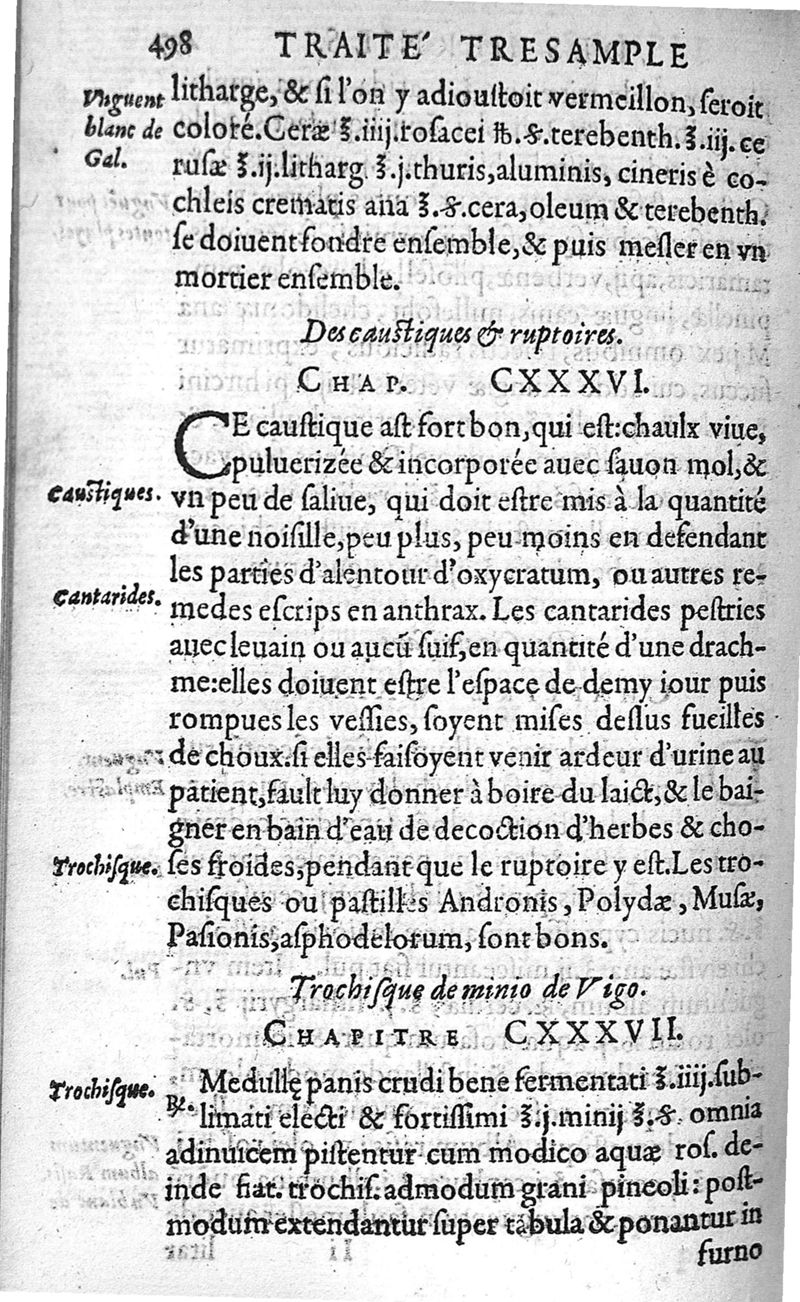 498 TRAITE' TRESAMPLE
Vnguent
blanc de
Gal.
litharge, & si l'on y adioustoit vermeillon, seroit
coloré. Ceræ ℥.iiij. rosacei ℔.ß. terebenth. ℥.iij. ce
rusæ ℥.ij. litharg. ℥.j. thuris, aluminis, cineris è co-
chleis crematis ana ℥.ß. cera, oleum & terebenth.
se doiuent fondre ensemble, & puis mesler en vn
mortier ensemble.
Des caustiques & ruptoires.
CHAP. CXXXVI.
Caustiques.
CE caustique ast fort bon, qui est: chaulx viue,
puluerizée & incorporée auec sauon mol, &
vn peu de saliue, qui doit estre mis à la quantité
d'une noisille, peu plus, peu moins en defendant
les parties d'alentour d'oxycratum, ou autres re-
Cantarides.
medes escrips en anthrax. Les cantarides pestries
auec leuain ou aucũ suif, en quantité d'une drach-
me: elles doiuent estre l'espace de demy iour puis
rompues les vessies, soyent mises dessus fueilles
de choux. si elles faisoyent venir ardeur d'urine au
patient, fault luy donner à boire du laict, & le bai-
gner en bain d'eau de decoction d'herbes & cho-
Trochisque.
ses froides, pendant que le ruptoire y est. Les tro-
chisques ou pastilles Andronis, Polydæ, Musæ,
Pasionis, asphodelorum, sont bons.
Trochisque de minio de Vigo.
CHAPITRE CXXXVII.
Trochisque.
℞. Medullę panis crudi bene fermentati ℥.iiij. sub-
limati electi & fortissimi ℥.j. minij ℥.ß omnia
adinuicem pistentur cum modico aquæ ros. de-
inde fiat. trochis. admodum grani pineoli: post-
modum extendantur super tabula & ponantur in
furno